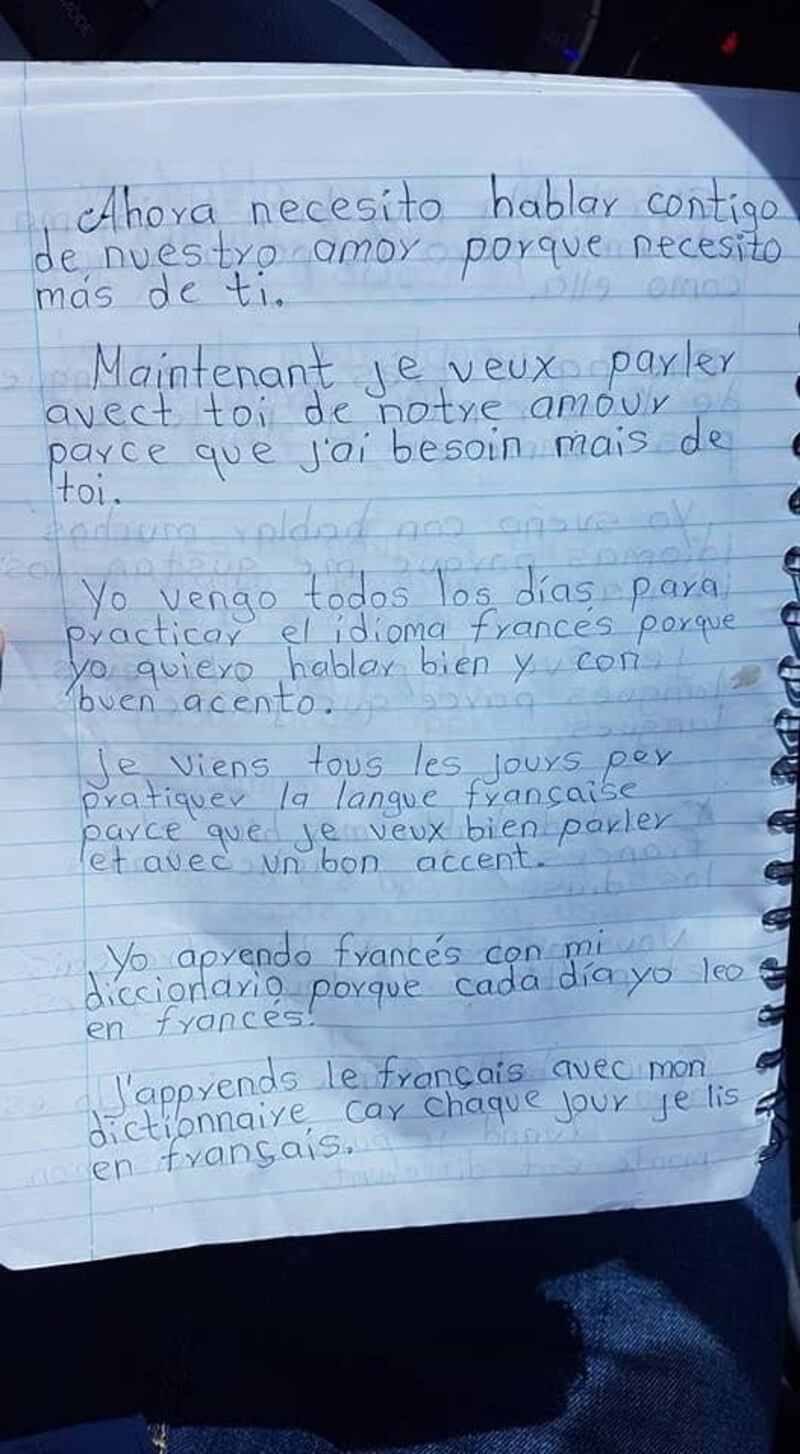 Ahora necesito hablar contigo
de nuestro amor porque necesito
más de ti.
Maintenant je veux parler
avect toi de notre amour
parce que j'ai besoin mais de
toi.
Yo vengo todos los días para
practicar el idioma francés porque
yo quiero hablar bien y con
buen acento.
Je viens tous les jours per
pratiquer la langue française
parce que je veux bien parler
et avec un bon accent.
Yo aprendo francés con mi
diccionario porque cada día yo leo
en francés.
J'apprends le français avec mon
dictionnaire car chaque jour je lis
en français.